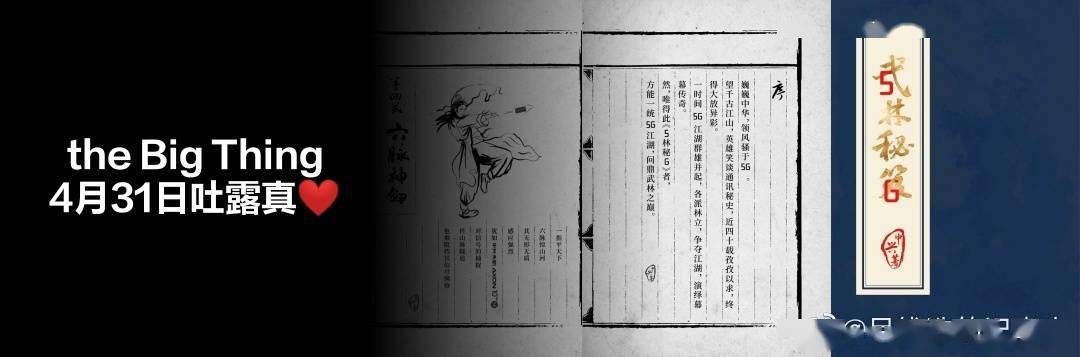 the Big Thing
4月31日吐露真❤️
六脉神剑
一指平天下
六脉惊山河
其无形无质
序
巍巍中华，领风骚于5G 。
望千古江山，英雄笑谈通讯秘史，近四十载孜孜以求，终
得大放异彩。
一时间5G江湖群雄并起，各派林立，争夺江湖，演绎幕
幕传奇。
然，唯得此《5林秘G》者，
方能一统5G江湖，问鼎武林之巅。
武林秘笈
5
G
中兴著